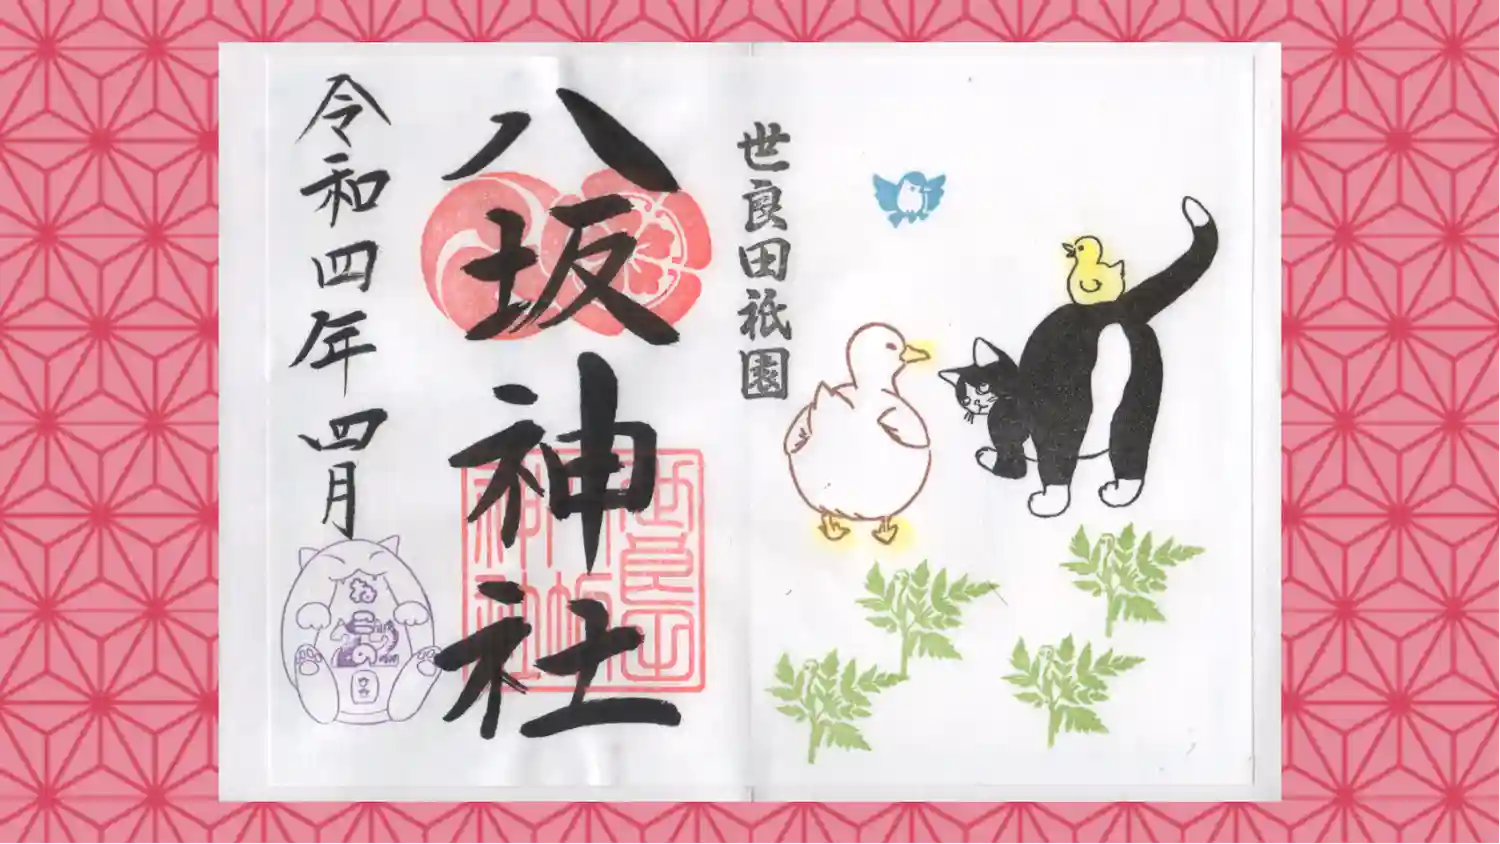 世良田祇園
八坂神社
令和四年四月